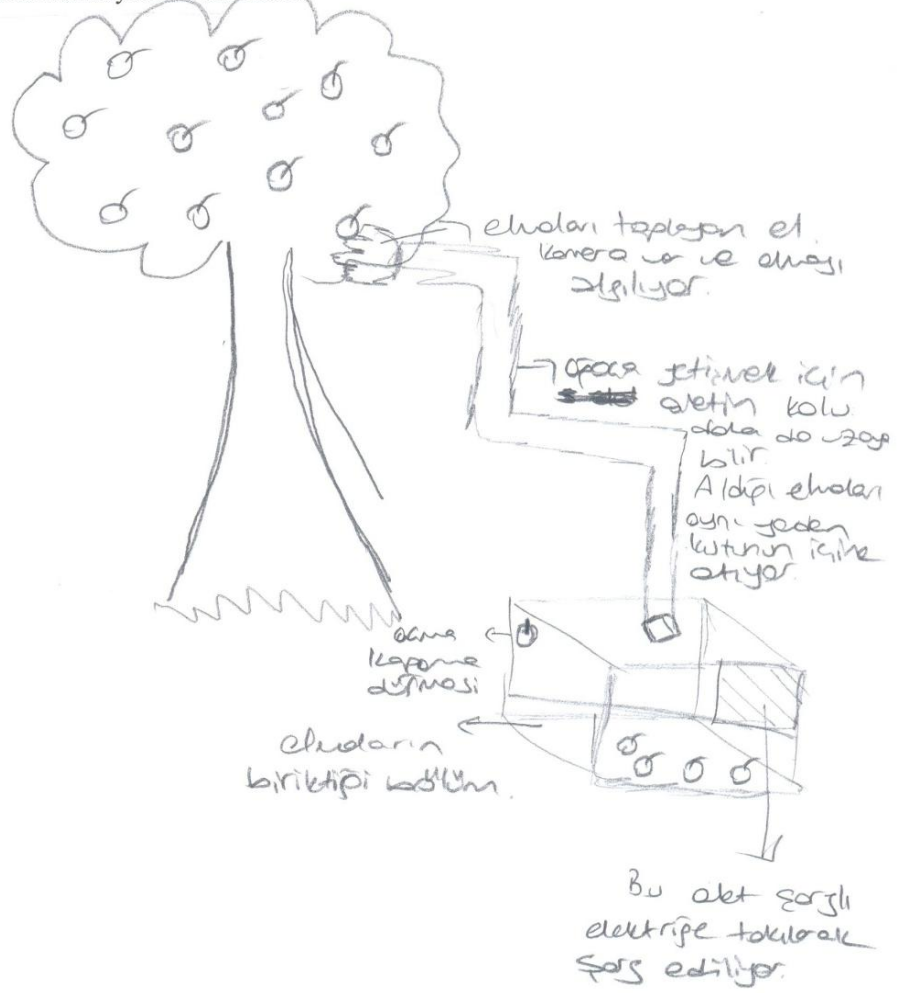 elmaları toplayan el.
kamera var ve elmayı
algılıyor.
ağaca yetişmek için
aletin kolu
daha da uzaya
bilir.
Aldığı elmaları
aynı yerden
kutunun içine
atıyor.
açma
kapama
düğmesi
elmaların
biriktiği bölüm.
Bu alet şarjlı
elektriğe takılarak
şarj ediliyor.